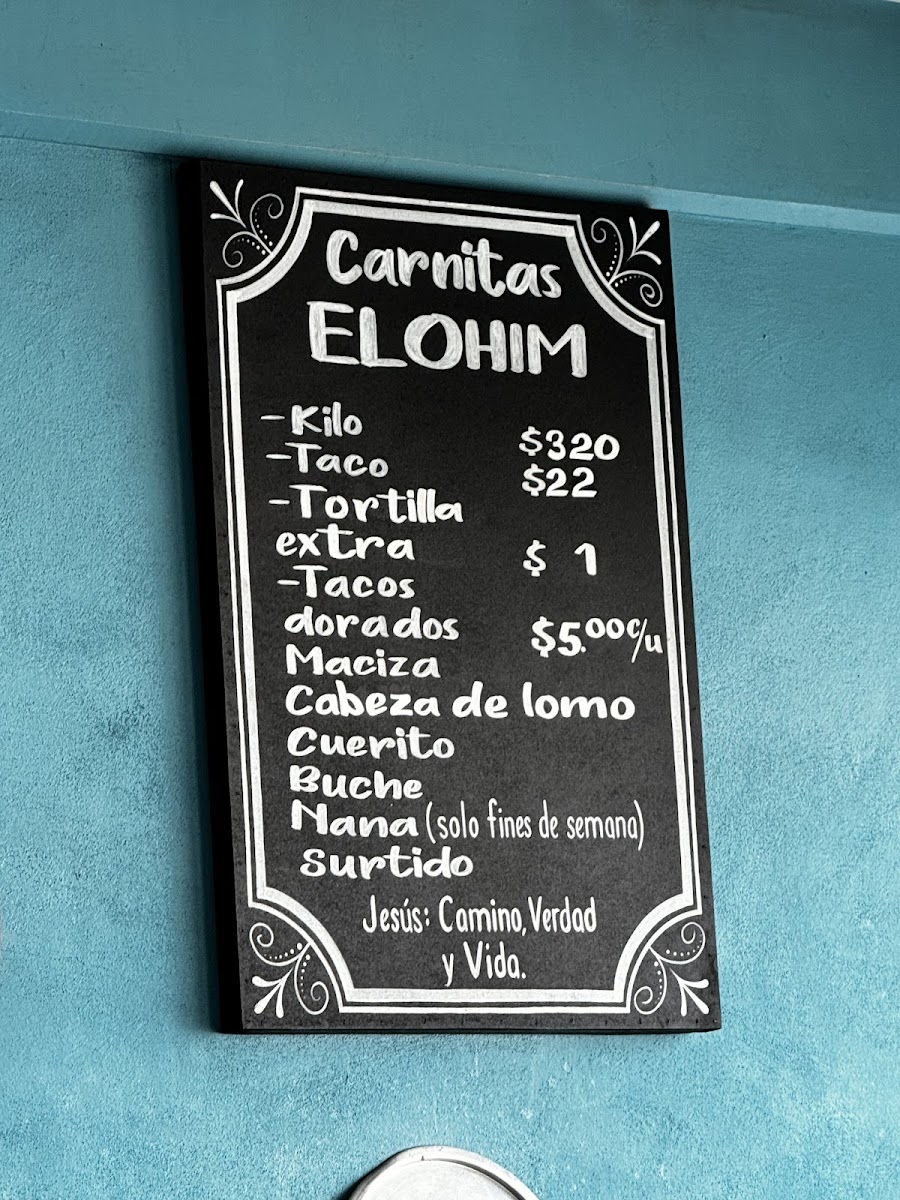 Carnitas
ELOHIM
-Kilo $320
-Taco $22
-Tortilla
extra $ 1
-Tacos
dorados $5.00 c/u
Maciza
Cabeza de lomo
Cuerito
Buche
Nana (solo fines de semana)
surtido
Jesús: Camino, Verdad
y Vida.